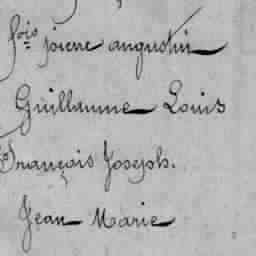 fois pierre augustin
Guillaume Louis
François Joseph.
Jean Marie